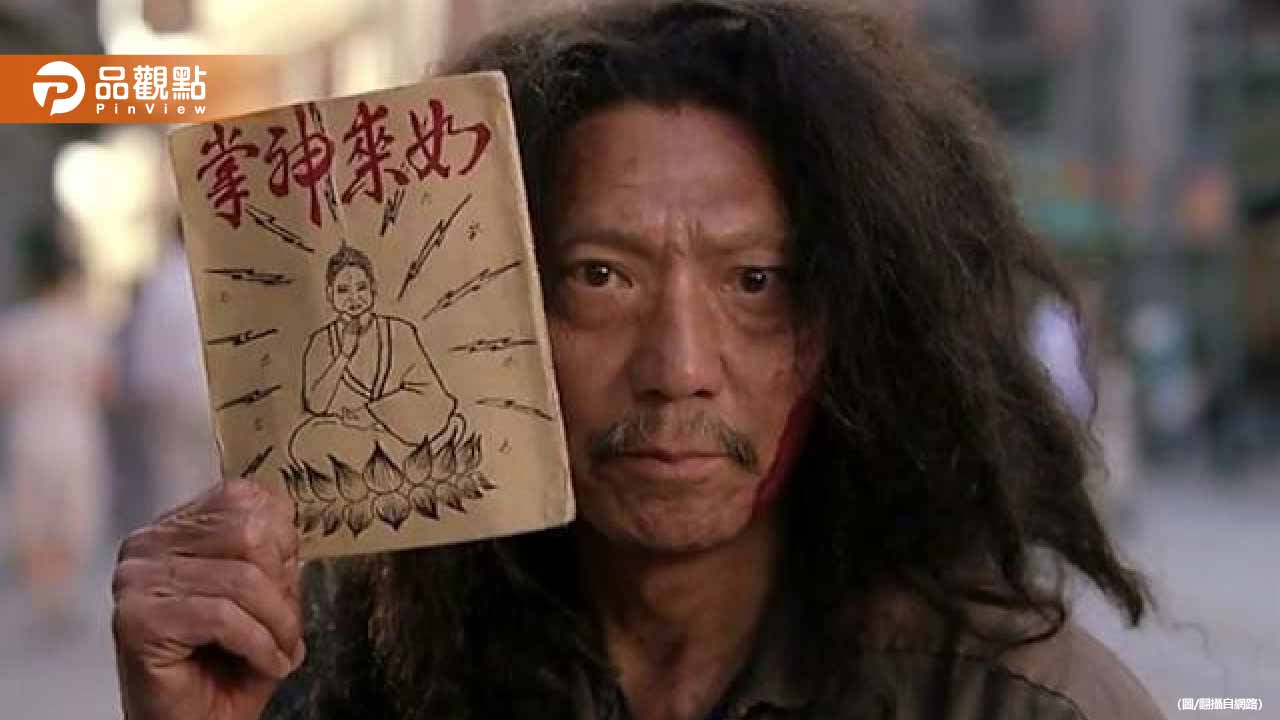 品觀點
PinView
如來神掌
(圖/翻攝自網路)